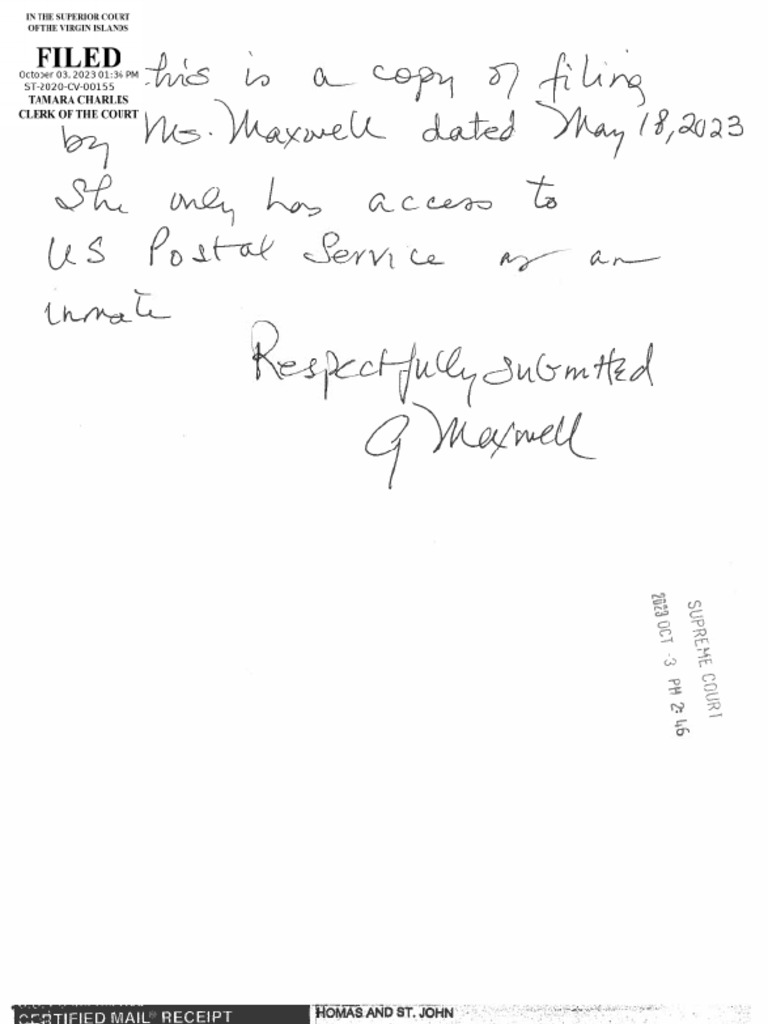 IN THE SUPERIOR COURT
OF THE VIRGIN ISLANDS
FILED
October 03, 2023 01:34 PM
ST-2020-CV-00155
TAMARA CHARLES
CLERK OF THE COURT
this is a copy of filing
by Ms. Maxwell dated May 18, 2023
She only has access to
US Postal Service as an
inmate
Respectfully submitted
G Maxwell
SUPREME COURT
2023 OCT -3 PM 2:46
CERTIFIED MAIL® RECEIPT
HOMAS AND ST. JOHN